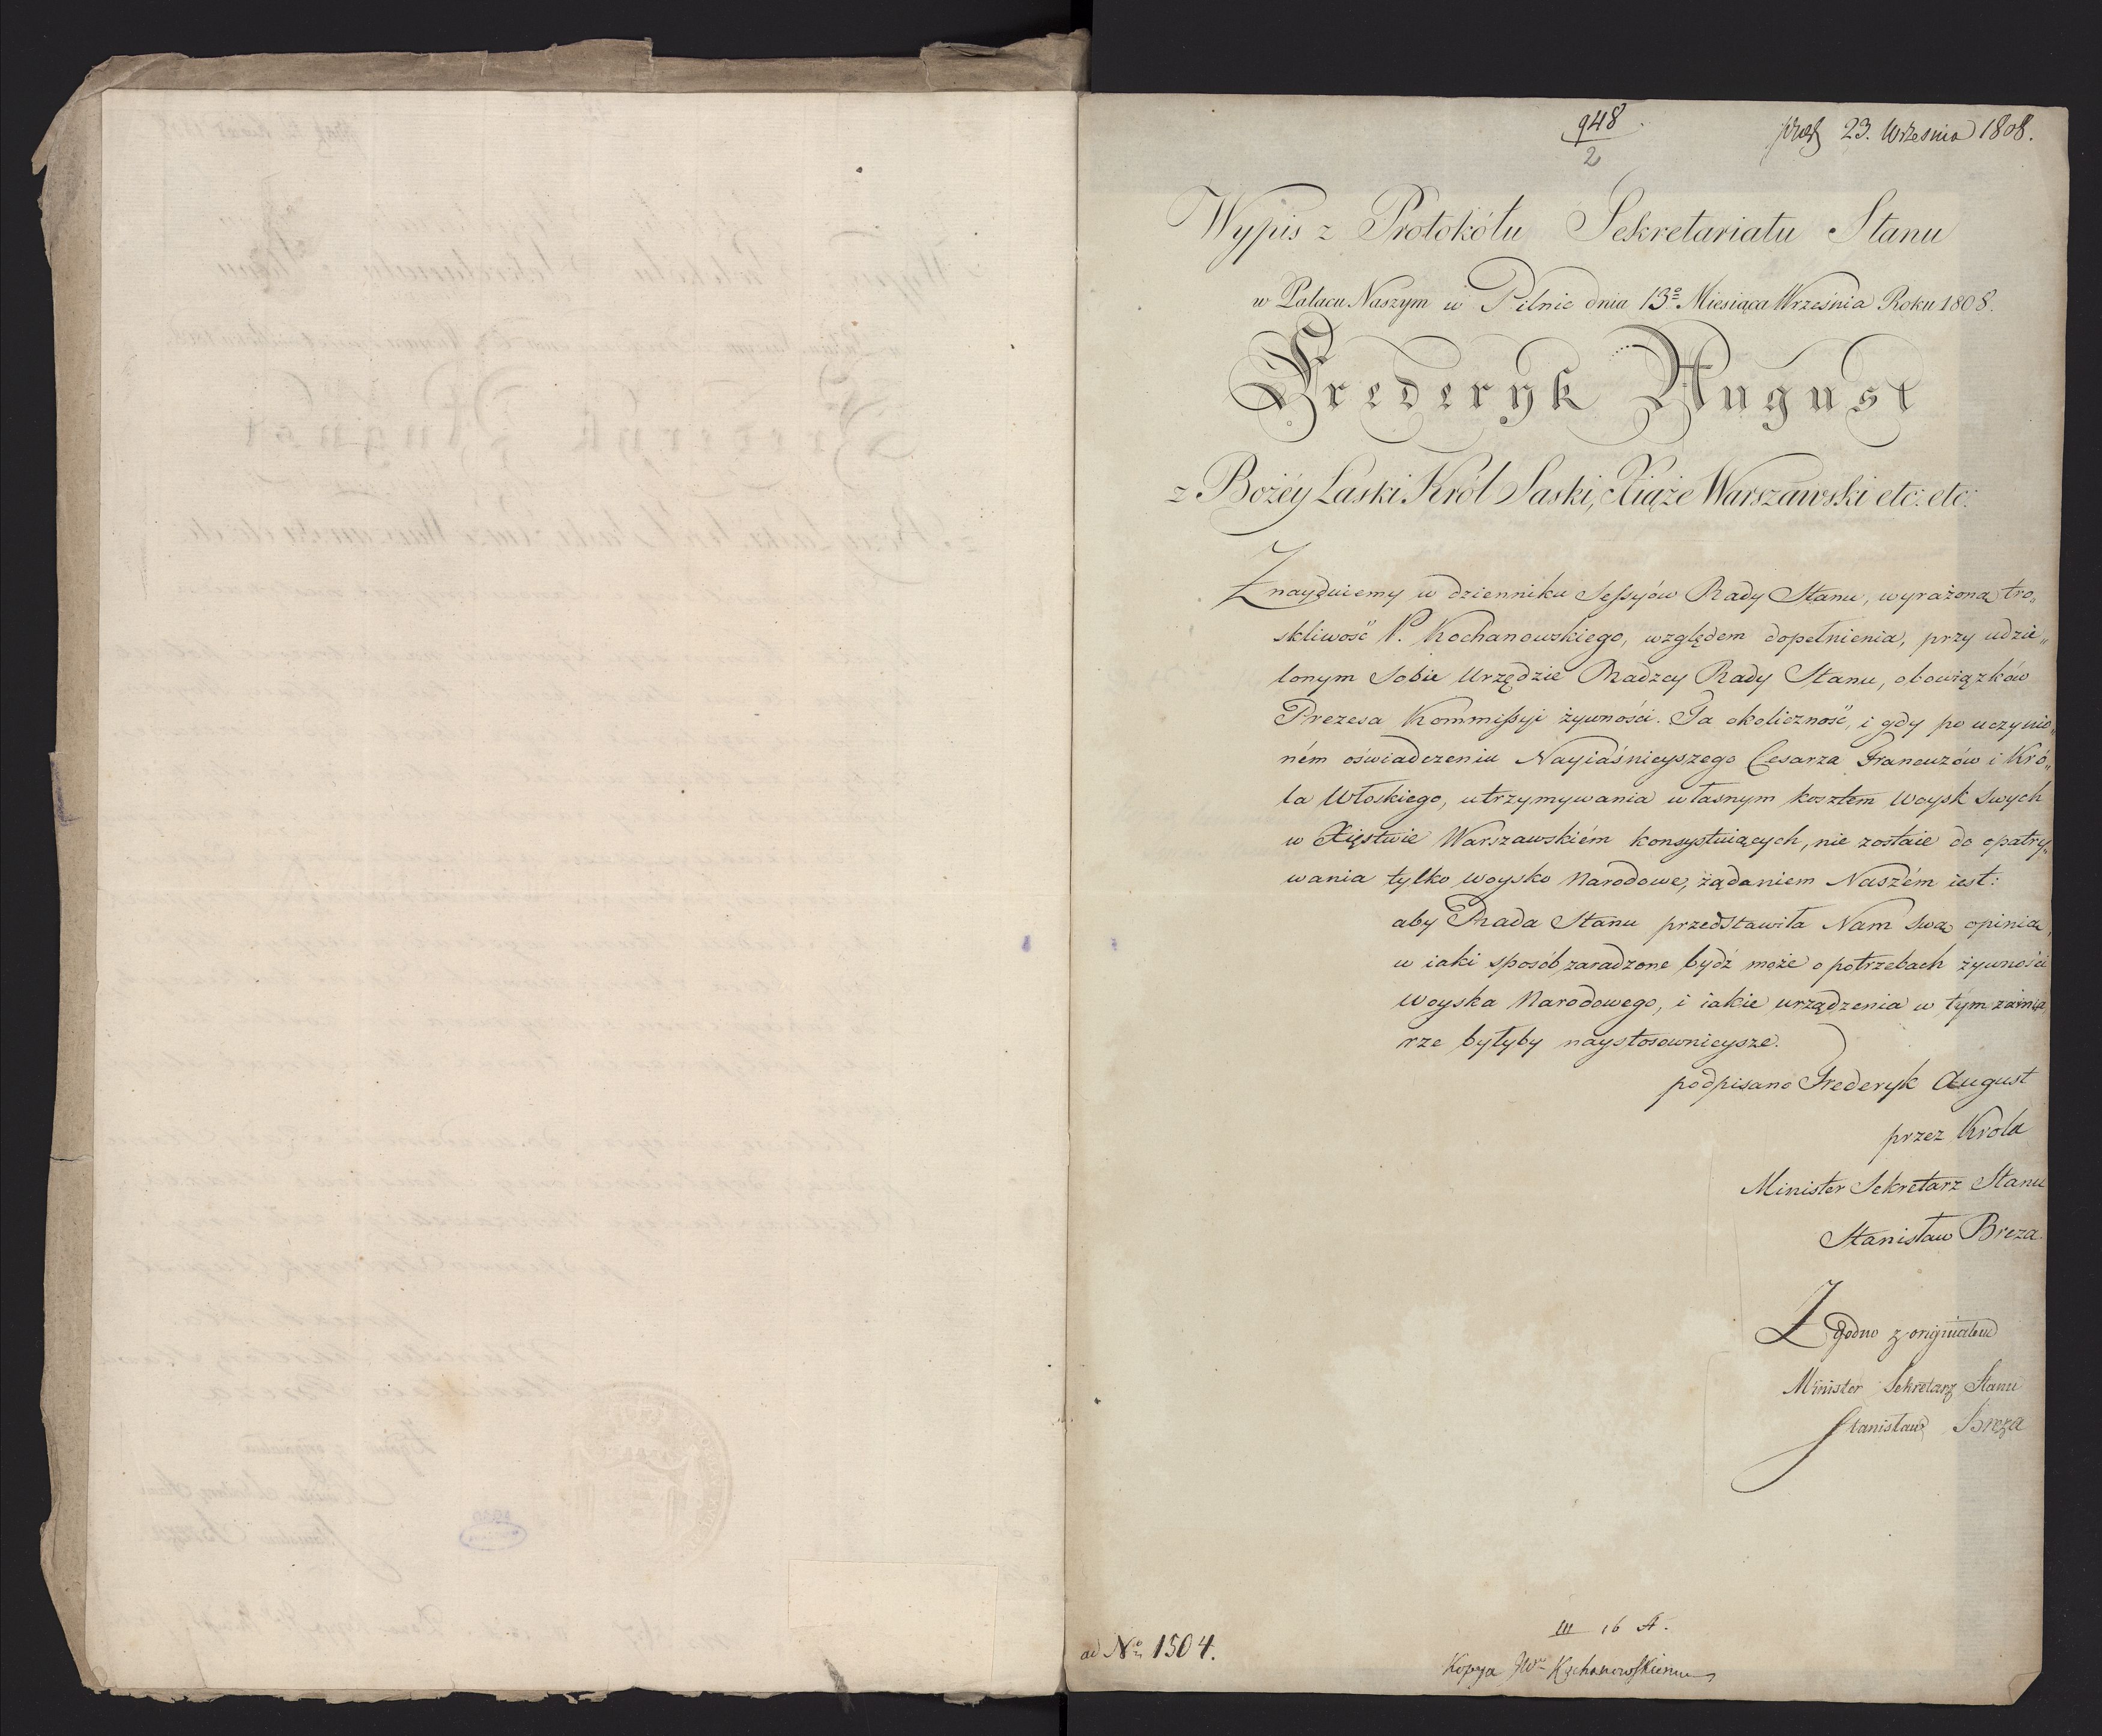 948
2
præs 23. Września 1808.
Wypis z Protokółu Sekretariatu Stanu
w Pałacu Naszym w Pilnic dnia 13º Miesiąca Września Roku 1808.
Frederyk August
z Bożéy Łaski Król Saski, Xiąże Warszawski etc: etc:
Znayduiemy w dzienniku Sessyów Rady Stanu, wyrażoną tro„
skliwość P. Kochanowskiego, względem dopełnienia, przy udzie„
lonym Sobie Urzędzie Radzcy Rady Stanu, obowiązków
Prezesa Kommissyi żywności. Ta okoliczność, i gdy po uczynio„
ném oświadczeniu Nayiaśnieyszego Cesarza Francuzów i Kró„
la Włoskiego, utrzymywania własnym kosztem Woysk Swych
w Xięstwie Warszawskiém konsystuiących, nie zostaie do opatry„
wania tylko woysko Narodowe, żądaniem Naszém iest:
aby Rada Stanu przedstawiła Nam swą opinią,
w iaki sposób zaradzone bydź może o potrzebach żywności
Woyska Narodowego, i iakie urządzenia w tym zamia„
rze byłyby naystosownieysze.
podpisano Frederyk August
przez Króla
Minister Sekretarz Stanu
Stanisław Breza.
Zgodno z originałem
Minister Sekretarz Stanu
Stanisław Breza
III 16 A.
ad Nº 1504.
Kopya JWº Kochanowskiemu